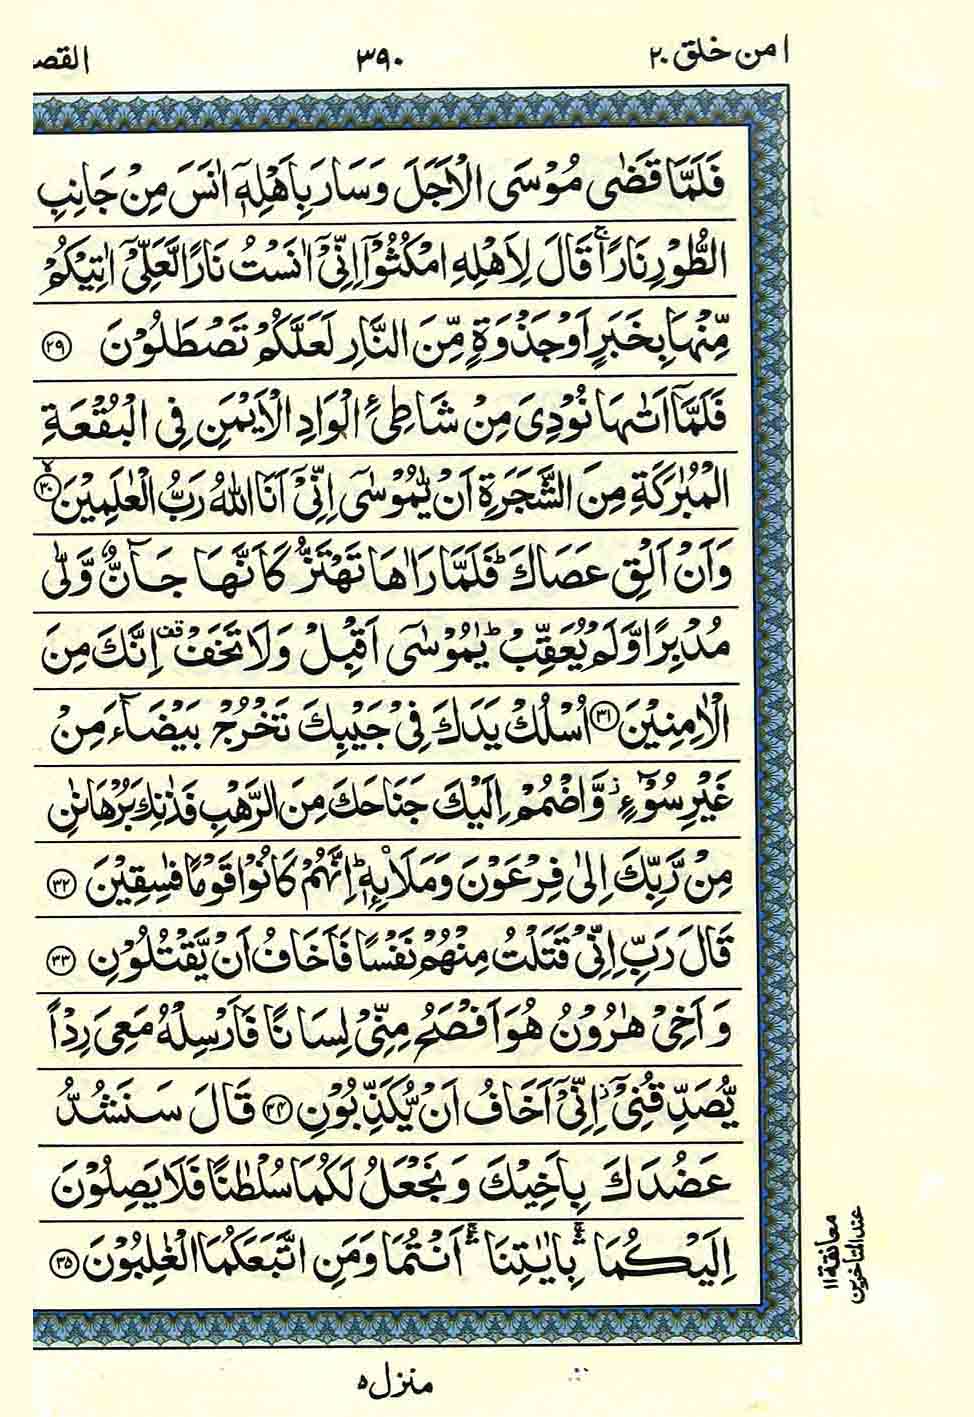 امن خلق ٢٠ ٣٩٠ القص
فَلَمَّا قَضٰى مُوْسَى الْاَجَلَ وَسَارَ بِاَهْلِهٖۤ اٰنَسَ مِنْ جَانِبِ
الطُّوْرِ نَارًا ۚ قَالَ لِاَهْلِهِ امْكُثُوْۤا اِنِّىْۤ اٰنَسْتُ نَارًا لَّعَلِّىْۤ اٰتِيْكُمْ
مِّنْهَا بِخَبَرٍ اَوْ جَذْوَةٍ مِّنَ النَّارِ لَعَلَّكُمْ تَصْطَلُوْنَ ﴿٢٩﴾
فَلَمَّاۤ اَتٰىهَا نُوْدِىَ مِنْ شَاطِئِ الْوَادِ الْاَيْمَنِ فِى الْبُقْعَةِ
الْمُبٰرَكَةِ مِنَ الشَّجَرَةِ اَنْ يّٰمُوْسٰۤى اِنِّىْۤ اَنَا اللّٰهُ رَبُّ الْعٰلَمِيْنَ ﴿٣٠﴾ ۙ
وَاَنْ اَلْقِ عَصَاكَ ؕ فَلَمَّا رَاٰهَا تَهْتَزُّ كَاَنَّهَا جَآنٌّ وَّلّٰى
مُدْبِرًا وَّلَمْ يُعَقِّبْ ؕ يٰمُوْسٰۤى اَقْبِلْ وَلَا تَخَفْ ۫ اِنَّكَ مِنَ
الْاٰمِنِيْنَ ﴿٣١﴾ اُسْلُكْ يَدَكَ فِىْ جَيْبِكَ تَخْرُجْ بَيْضَآءَ مِنْ
غَيْرِ سُوْٓءٍ ؗ وَّاضْمُمْ اِلَيْكَ جَنَاحَكَ مِنَ الرَّهْبِ فَذٰنِكَ بُرْهَانٰنِ
مِنْ رَّبِّكَ اِلٰى فِرْعَوْنَ وَمَلَا۟ئِهٖ ؕ اِنَّهُمْ كَانُوْا قَوْمًا فٰسِقِيْنَ ﴿٣٢﴾
قَالَ رَبِّ اِنِّىْ قَتَلْتُ مِنْهُمْ نَفْسًا فَاَخَافُ اَنْ يَّقْتُلُوْنِ ﴿٣٣﴾
وَاَخِىْ هٰرُوْنُ هُوَ اَفْصَحُ مِنِّىْ لِسَانًا فَاَرْسِلْهُ مَعِىَ رِدْاً
يُّصَدِّقُنِىْۤ ؗ اِنِّىْۤ اَخَافُ اَنْ يُّكَذِّبُوْنِ ﴿٣٤﴾ قَالَ سَنَشُدُّ
عَضُدَكَ بِاَخِيْكَ وَنَجْعَلُ لَكُمَا سُلْطٰنًا فَلَا يَصِلُوْنَ
اِلَيْكُمَا ۛ بِاٰيٰتِنَاۤ ۛ اَنْتُمَا وَمَنِ اتَّبَعَكُمَا الْغٰلِبُوْنَ ﴿٣٥﴾
معانقة ١١
عند المتأخرين
منزل ٥